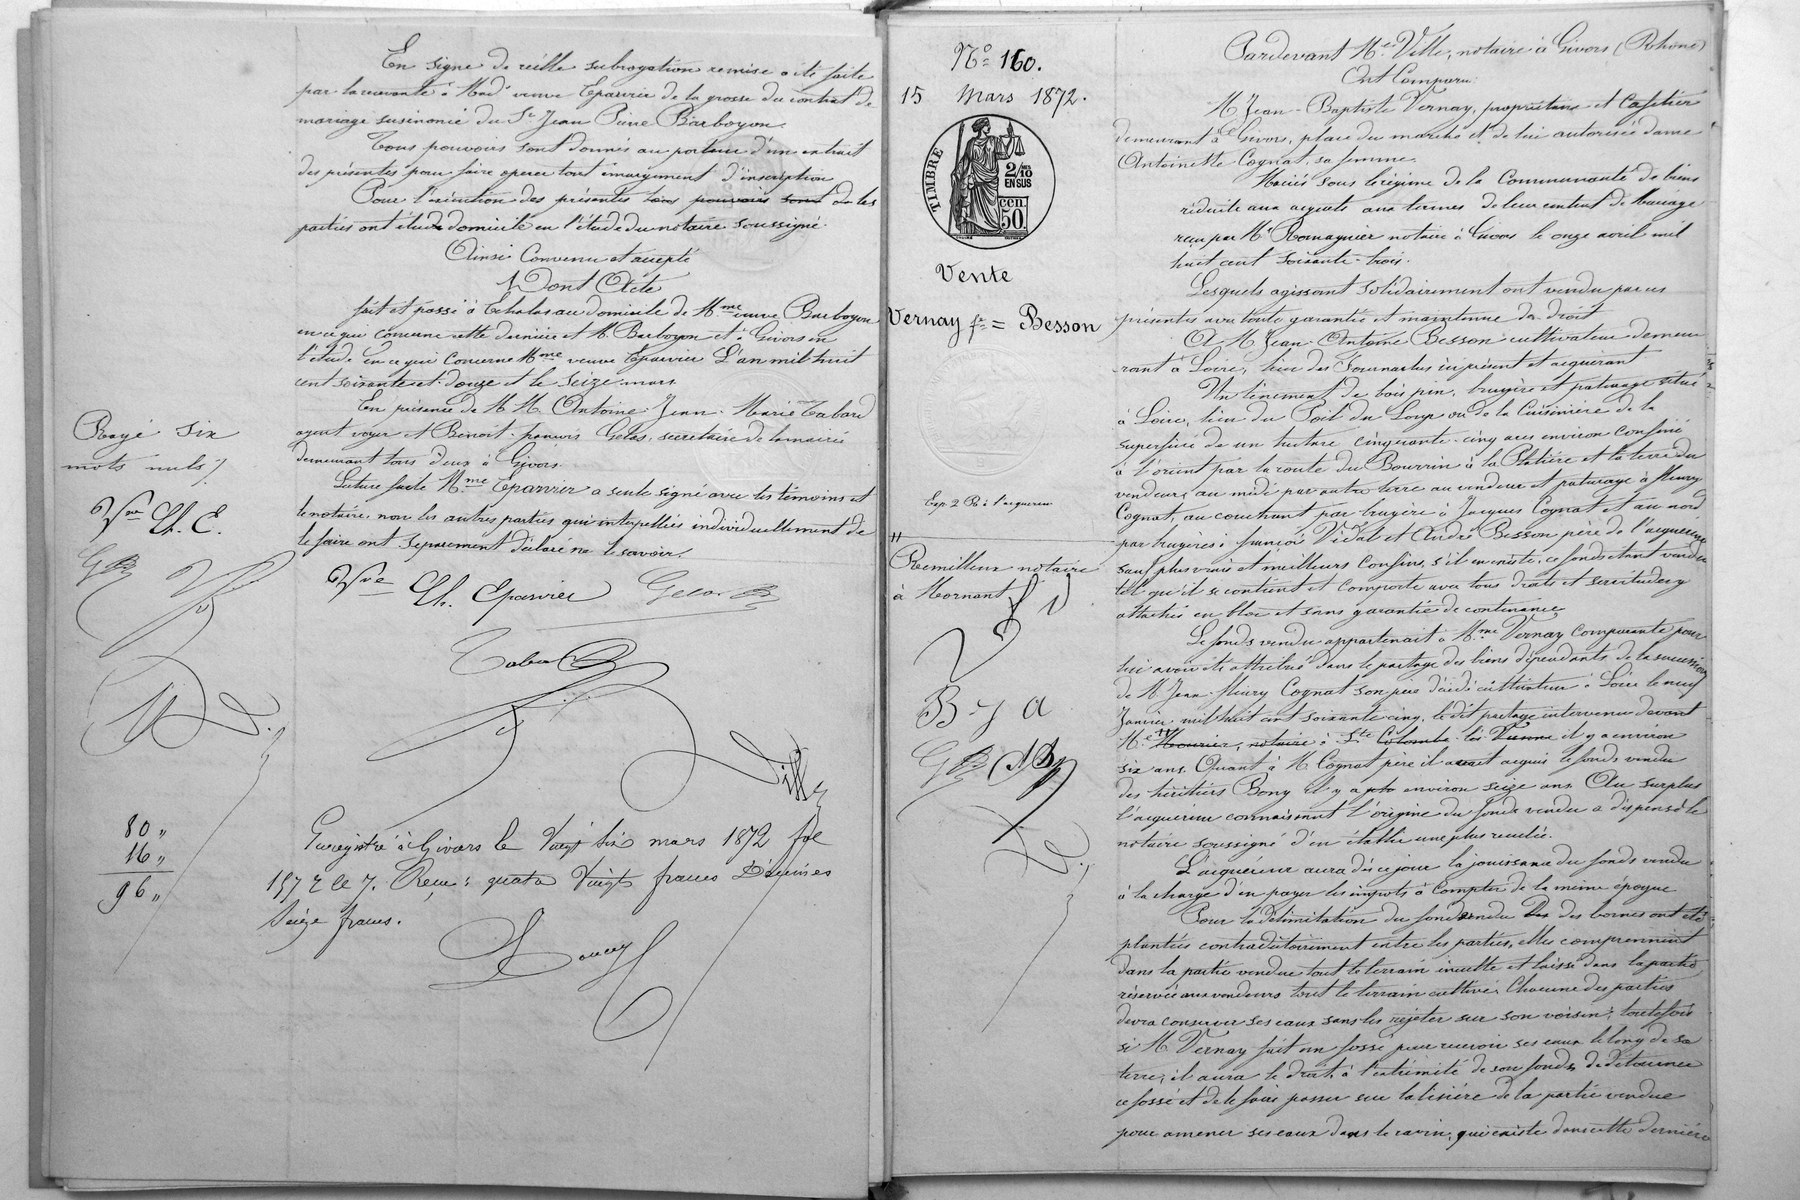 En signe de réelle subrogation remise a été faite
par la urvante à Mad' veuve Eparvier de la grosse du contrat de
mariage susénoncé du Sr Jean Pierre Barboyon.
Tous pouvoirs sont donnés au porteur d'un extrait
des présentes pour faire opérer tout émargement d'inscription
Pour l'exécution des présentes tous pouvoirs sont les
parties ont élu domicile en l'étude du notaire soussigné.
Ainsi Convenu et accepté
Dont Acte
fait et passé à Echalas au domicile de Mme veuve Barboyon
en ce qui concerne cette dernière et M. Barboyon et à Givors en
l'étude en ce qui concerne Mme veuve Eparvier L'an mil huit
cent soixante et douze et le seize mars
En présence de M.M. Antoine Jean-Marie Tabard
agent voyer et Benoit Gelas, secrétaire de la mairie
demeurant tous deux à Givors.
Lecture faite Mme Eparvier a seule signé avec les témoins et
le notaire, non les autres parties qui interpellées individuellement de
le faire ont séparément déclaré ne le savoir.
Vve Ch. Eparvier Gelas B
Tabard
Ville
Rayé six
mots nuls
Vve Ch. E.
GB
80 "
16 "
96 "
Enregistré à Givors le Vingt six mars 1872 fol
157 Ve C 7. Reçu : quatre Vingt francs Décimes
Seize francs.
No 160.
15 Mars 1872.
TIMBRE
2/10
EN SUS
50 cen.
Vente
Vernay fe = Besson
Exp. 2 R à l'acquereur
Remilleux notaire
à Mornant
B J A
GB
Pardevant Me Ville, notaire à Givors (Rhône)
Ont Comparu
M. Jean-Baptiste Vernay, propriétaire et Cafetier
demeurant à Givors, place du marché et de lui autorisée dame
Antoinette Cognat, sa femme.
Mariés sous le régime de la Communauté de biens
réduite aux acquets aux termes de leur contrat de Mariage
reçu par Me Romagnier notaire à Givors le onze avril mil
huit cent soixante-trois.
Lesquels agissant solidairement ont vendu par ces
présentes avec toute garantie et maintenue de droit
A M. Jean-Antoine Besson cultivateur demeu
rant à Loire, lieu des Fournaches ici présent et acquérant
Un tènement de bois pin, bruyère et paturage situé
à Loire, lieu du Poil du Loup ou de la Cuisinière de la
superficie de un hectare cinquante-cinq ares environ confiné
à l'orient par la route du Bourrin à la Platière et la terre du
vendeur, au midi par autre terre au vendeur et paturage à Fleury
Cognat, au couchant par bruyère à Jacques Cognat et au nord
par bruyères à françois Vidal et André Besson père de l'acquéreur
sauf plus vrais et meilleurs Confins, s'il en existe, ce fonds étant vendu
tel qu'il se contient et comporte avec tous droits et servitudes y
attachés en bloc et sans garantie de contenance
Le fonds vendu appartenait à Mme Vernay Comparante pour
lui avoir été attribué dans le partage des biens dépendants de la succession
de M. Jean-Fleury Cognat son père décédé cultivateur à Loire le neuf
Janvier mil huit cent soixante cinq, le dit partage intervenu devant
Me Mourier, notaire à Ste Colombe lès Vienne il y a environ
six ans. Quant à M. Cognat père il avait acquis le fonds vendu
des héritiers Bony il y a environ seize ans. Au surplus
l'acquéreur connaissant l'origine du fonds vendu a dispensé le
notaire soussigné d'en établir une plus reculée.
L'acquéreur aura dès ce jour la jouissance du fonds vendu
à la charge d'en payer les impots à Compter de la même époque
Pour la délimitation du fonds vendu des bornes ont été
plantées contradictoirement entre les parties, elles comprennent
dans la partie vendue tout le terrain inculte et laissé dans la partie
réservée aux vendeurs tout le terrain cultivé. Chacune des parties
devra conserver ses eaux sans les rejeter sur son voisin ; toutefois
si M. Vernay fait un fossé pour recevoir ses eaux le long de sa
terre, il aura le droit à l'extrémité de son fonds de détourner
ce fossé et de le faire passer sur la lisière de la partie vendue
pour amener ses eaux dans le ravin, qui existe dans cette dernière